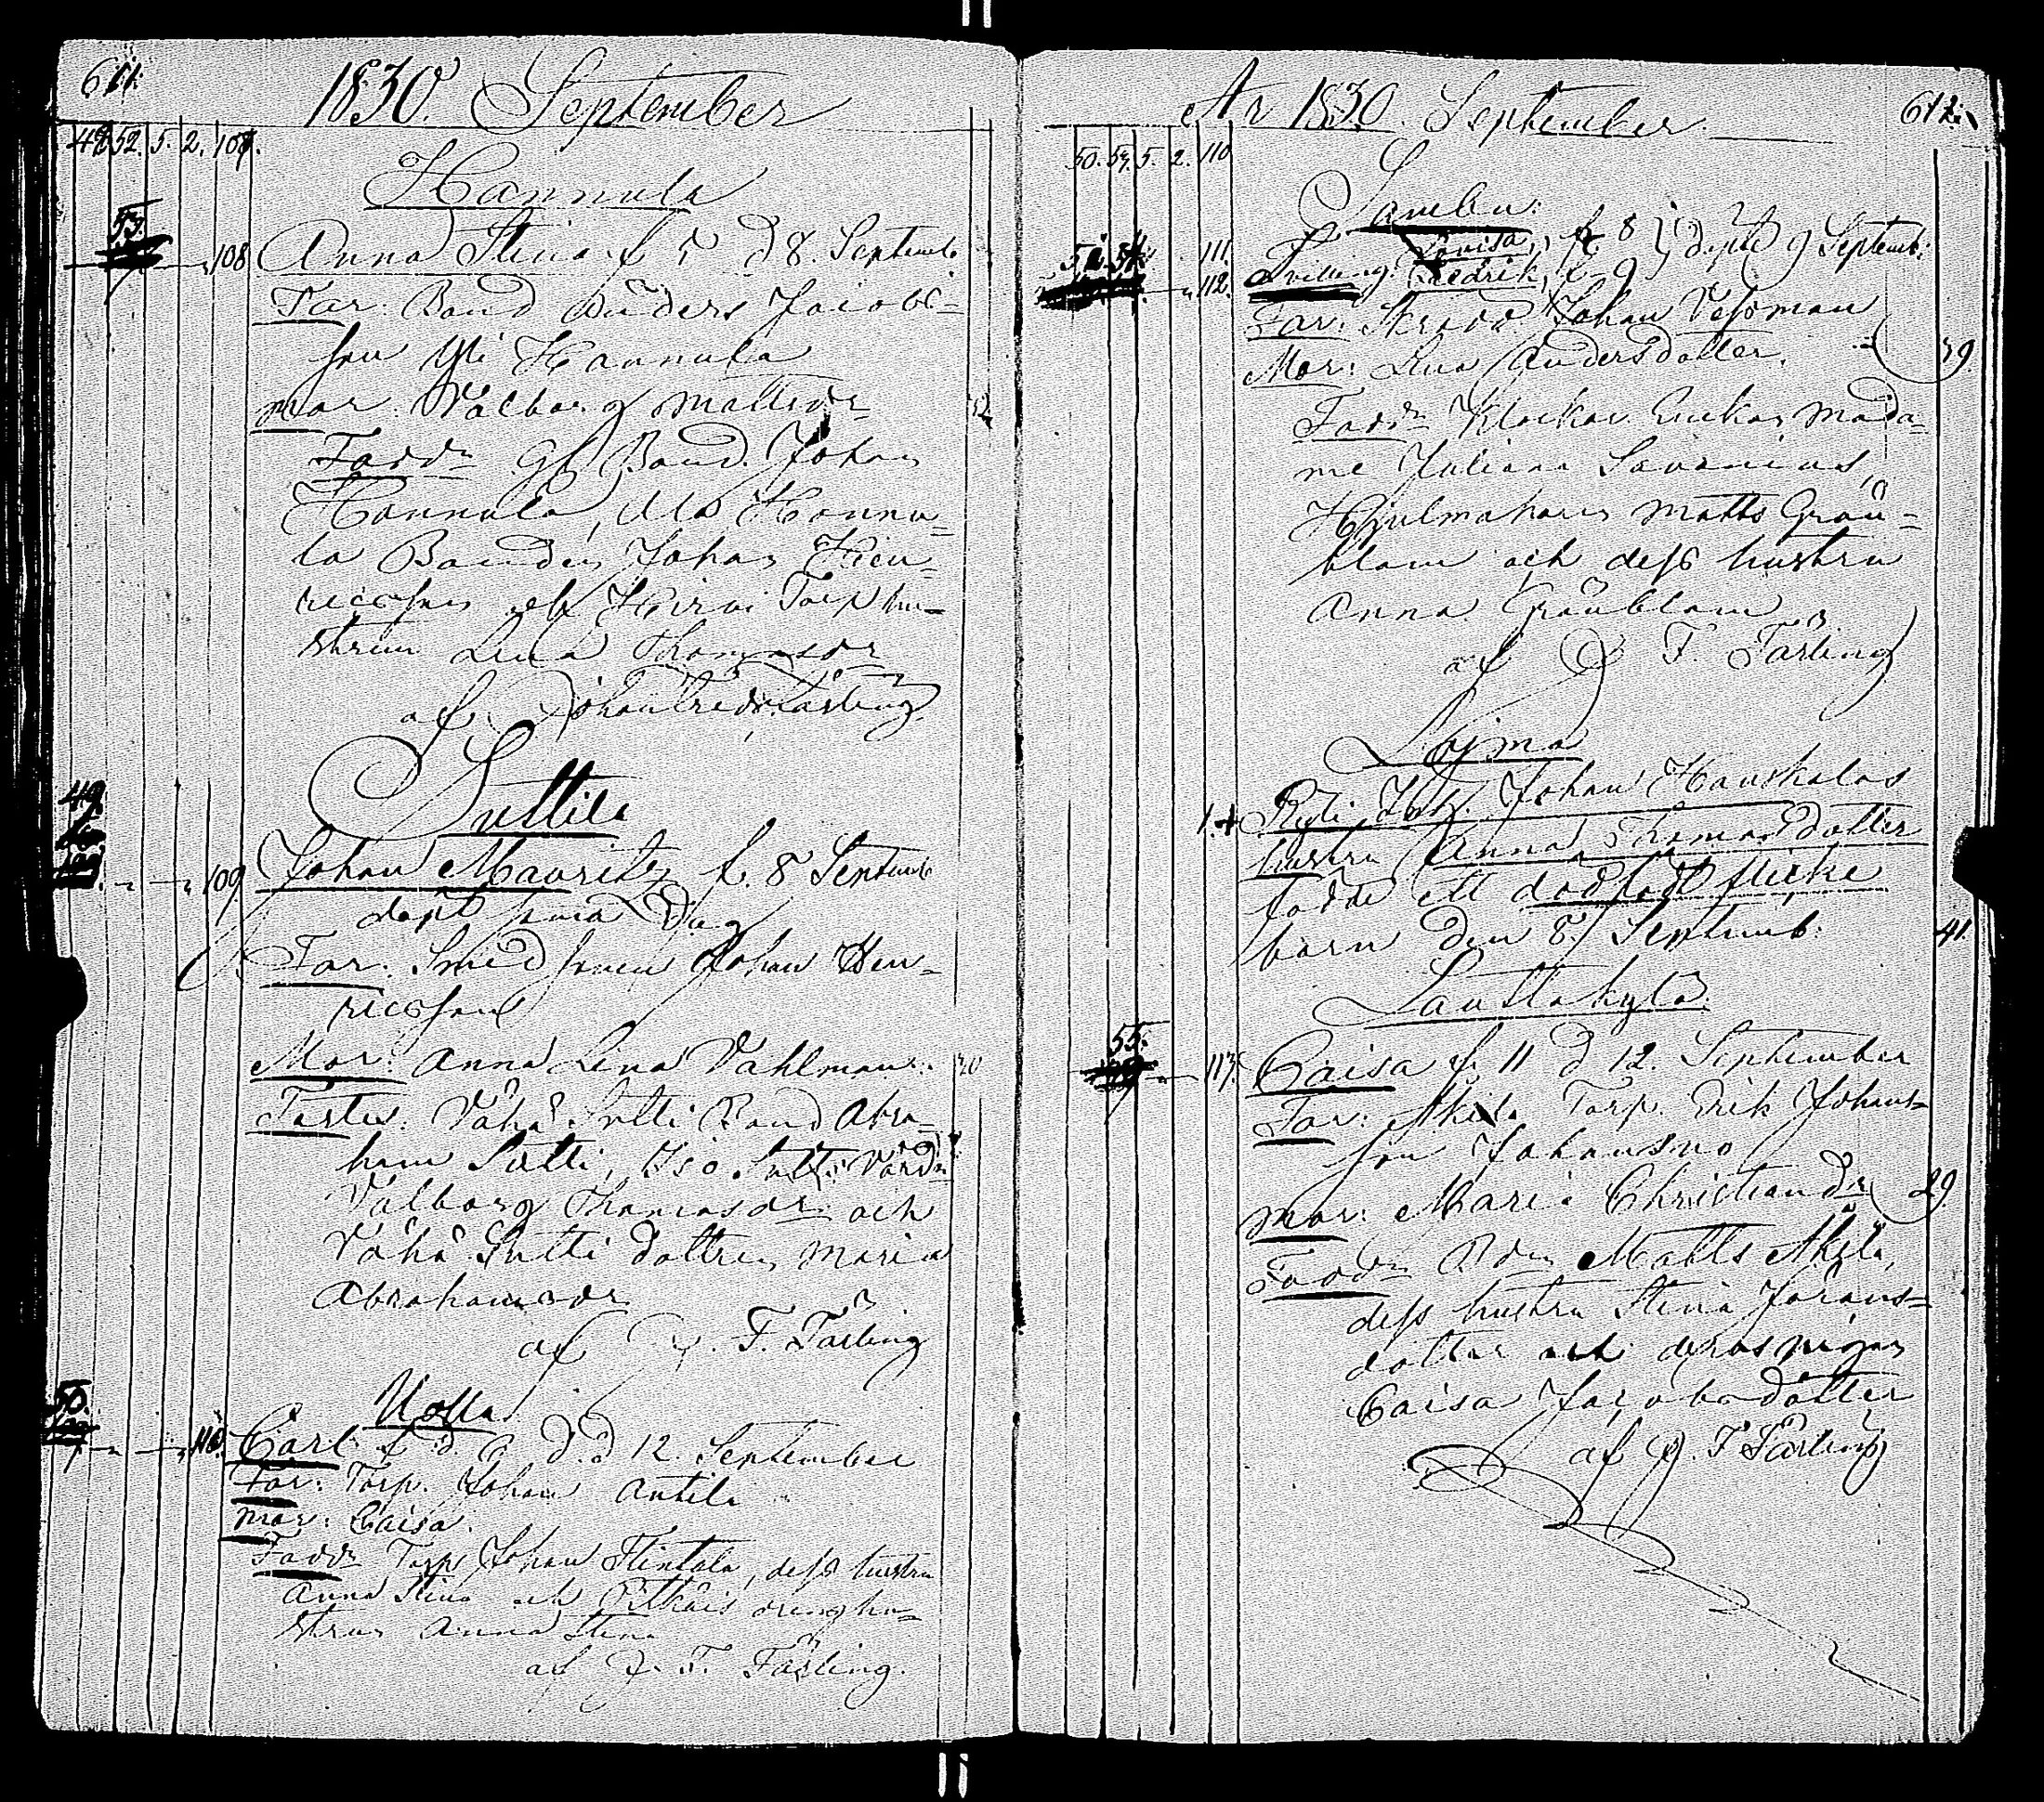 611.
1830. September
48 52. 5. 2. 107.
Hannula
53.
108 Anna Stina f. 5 d 8. Septemb
Far: Bond Anders Jacobs-
son Yli Hannula
Mor: Valborg Mattsdr 32
Faddr Gl Bond. Johan
Hannula, Ala Hannu-
la Bonden Johan Hen-
ricsson och Hirvi Torp hu-
strun Lena Thomasdr
af Johan Fredr Färling
Suttila
49.
109 Johan Mauritz f. 8 Septemb
döpt sama Dag
Far: Smed sonen Johan Hen-
ricsson
Mor: Anna Lena Vahlman 30
Testes: Vähä Sutti Bond Abra-
ham Sutti, Iso Sutti Värdn
Valborg Thomasdr och
Vähä Sutti dottren Maria
Abrahamsdr
af J. F. Färling
Nolla
50.
110. Carl f d 6 d. d 12. September
Far: Torp. Johan Antila
Mor: Caisa.
Faddr Torp Johan Flintala, dess hustru
Anna Stina och dreng hu-
strun Anna Stina
af J. F. Färling.
År 1830. September 612.
50. 53. 5. 2. 110
Sambu:
111. Lovisa, f. 8
döpte 9 Septemb:
51. 54. 112. Tvilling. Fredrik, f. 9
Far: Skrädd. Johan Vessman
Mor: Lena Andersdotter. 39.
Faddr Klockar Enkan Mada-
me Juliana Savenius,
Hjulmakaren Matts Grön-
blom och dess hustru
Anna Grönblom
af J. F. Färling
Loima
1. + Kyli Johan Hauskalas
hustru Anna Thomasdotter
födde ett dödfödt flicke
barn den 8. Septemb: 41.
Lauttakylä
55.
113. Caisa f. 11 d 12. September
Far: Torp. Erik Johans-
son
Mor: Maria Christiansdr 29
Faddr Bdn Matts
dess hustru Stina Jörans-
dotter och deras pigan
Caisa Jacobsdotter
af J. F. Färling